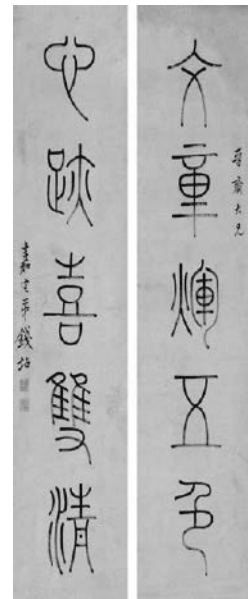 文章煇五色
大兄
心跡喜雙清
嘉定弟錢坫